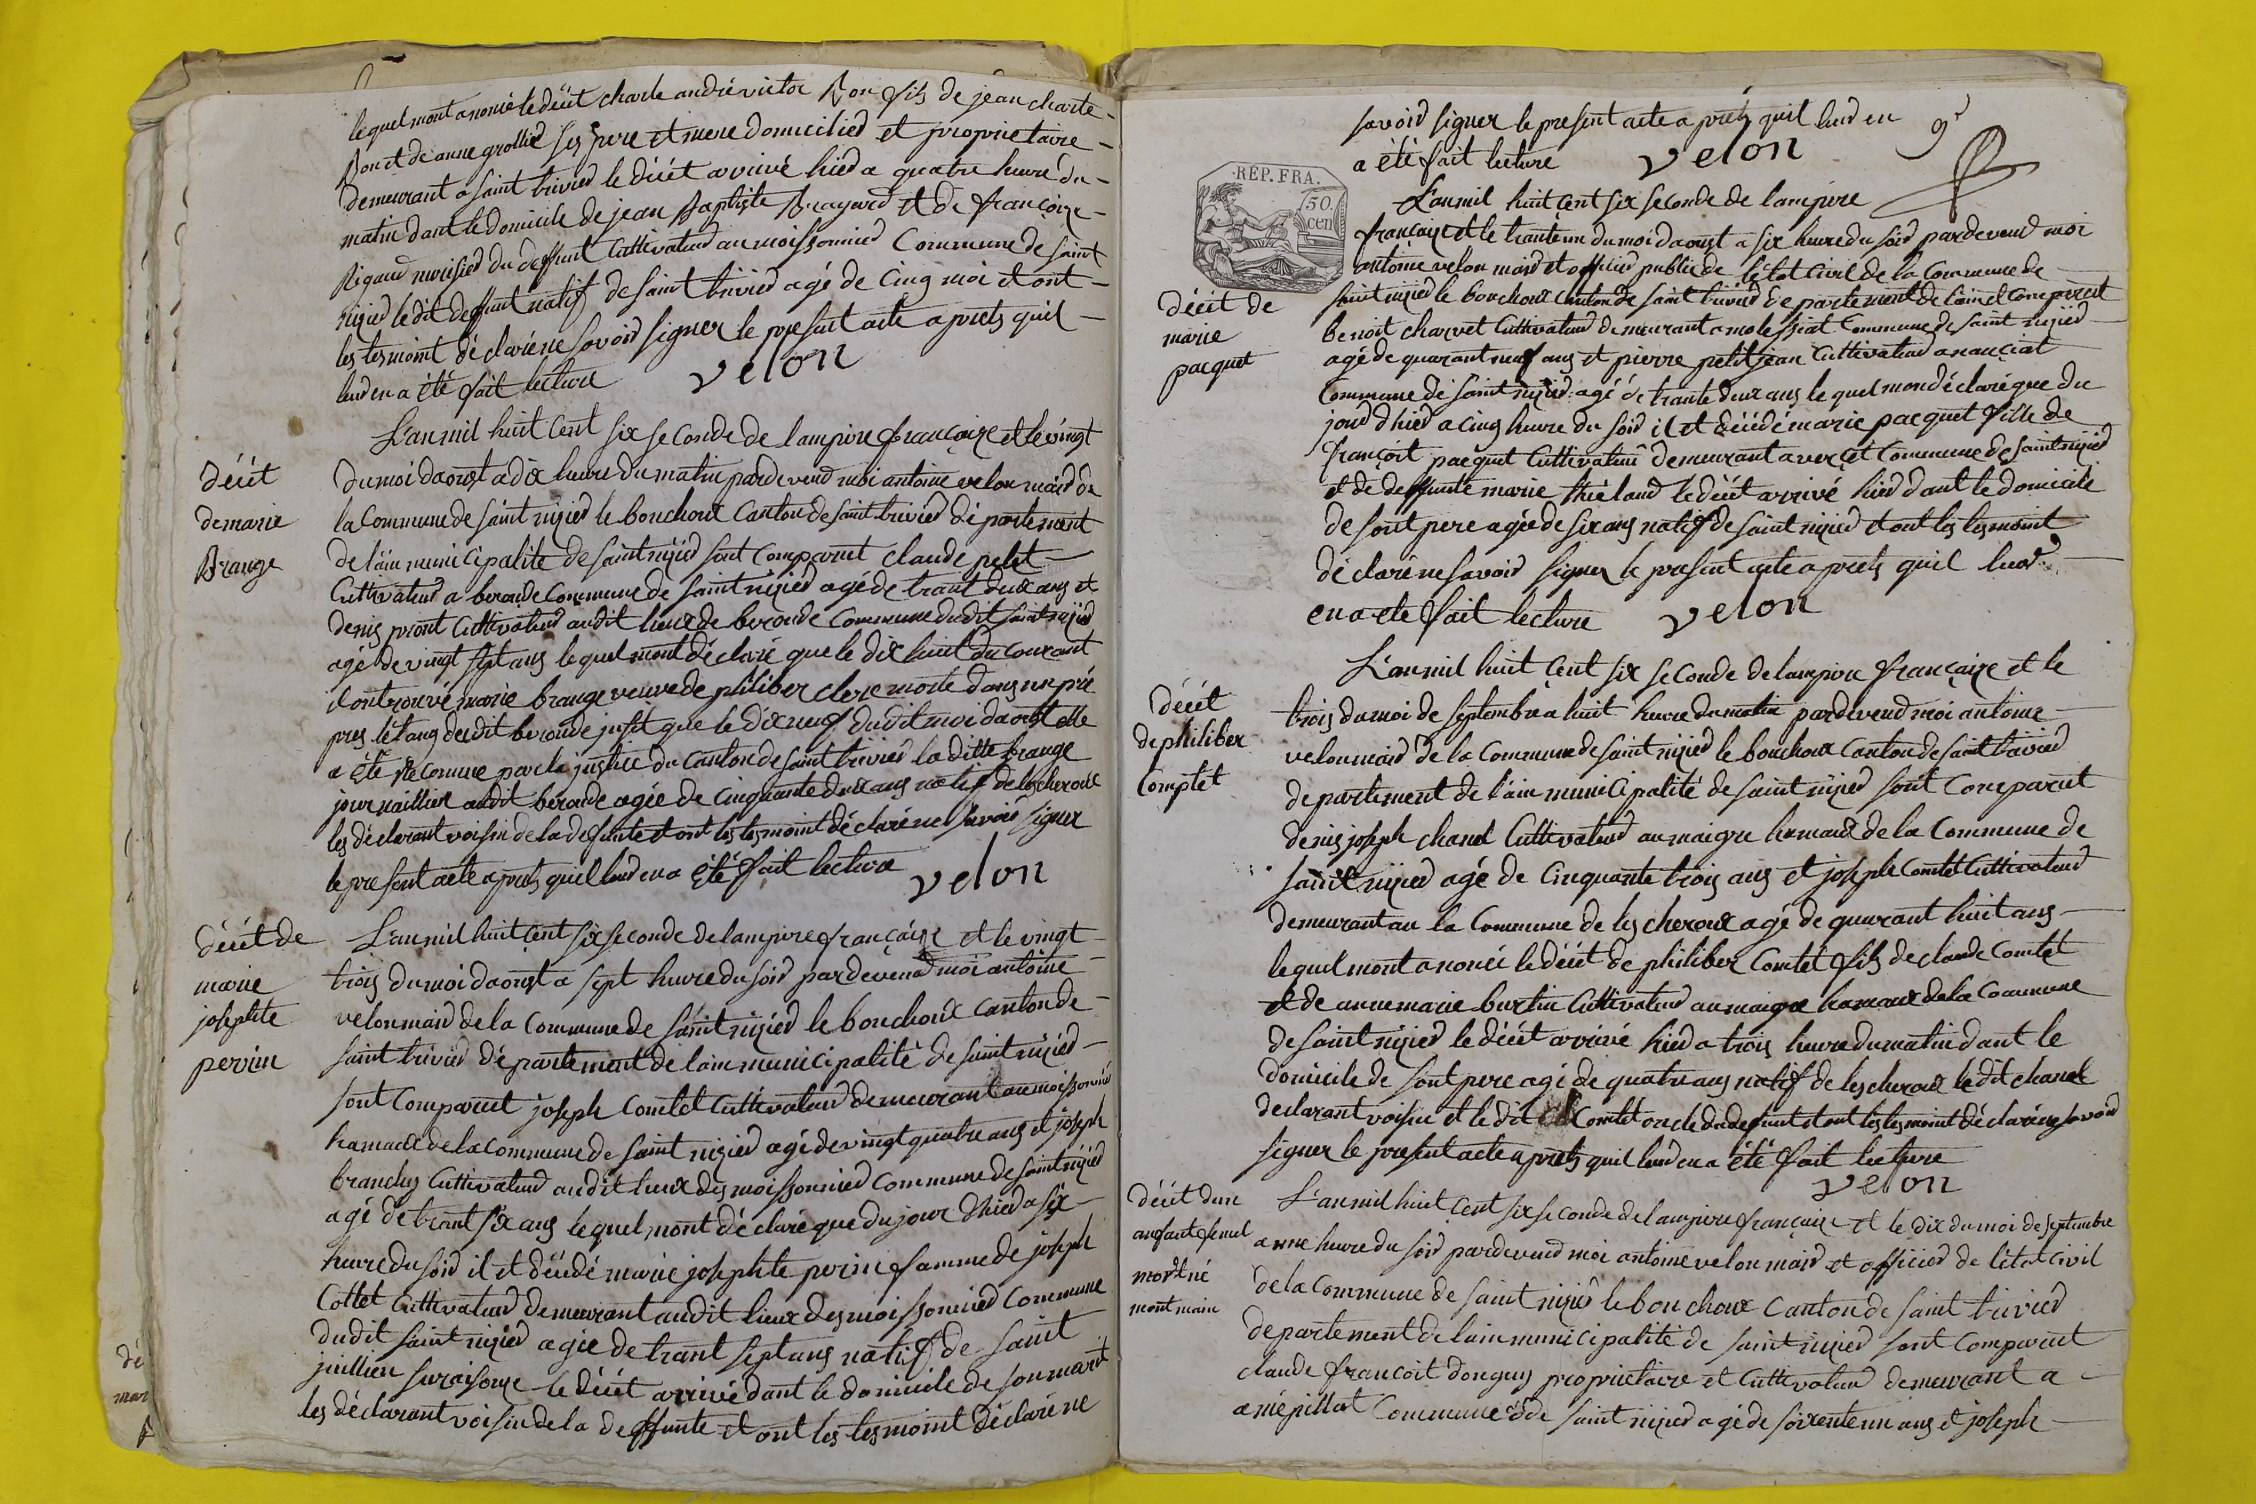 lequel mont anoncé le décit charle andré victor Bon fils de jean charle
Bon et de anne grollier ses pere et mere domicilied et proprietaire
demeurant a saint trivied le décét arrivé hied a quatre heure du
matin dant le domicile de jean Baptiste Brayard et de françoize
Rigaud nourisied du deffunt Cultivateud au moissonnied Commune de saint
nizied le dit deffunt natif de saint trivied agé de cinq moi et ont
les tesmoint déclaré ne savoir signer le present acte aprets quil
leud en a été fait lecture velon
L'an mil huit Cent six seconde de lampire françaize et le vingt
décét
de marie
Brange
du moi daoust a dix heure du matin pardevend moi antoine velon maird de
la Commune de saint nizied le bouchoux Canton de saint trivied département
de lain municipalité de saint nizied sont comparut claude petit
Cultivateud a beronde Commune de saint nizied agé de trant deux ans et
denis priont Cultivateud audit lieux de beronde Commune dudit saint nizied
agé de vingt sept ans lequel mont déclaré que le dix huit du courant
il ont trouvé marie brange veuve de philiber clere morte dans un pré
pres létang dudit beronde jusit que le dix neuf dudit moi daoust elle
a été reconnue par la justice du Canton de saint trivied la ditte brange
journaillière audit beronde agée de cinquante deux ans natif de lescheroux
les déclarant voisin de la defunte et ont les tesmoint déclaré ne savoir signer
le present acte aprets quil leud en a été fait lecture velon
décét de
marie
josephte
perrin
L'an mil huit Cent six seconde de lampire françaize et le vingt
trois du moi daoust a sept heure du soir pardevend moi antoine
velon maird de la Commune de saint nizied le bouchoux canton de
saint trivied département de lain municipalité de saint nizied
sont Comparut joseph Comtet Cultivateud demeurant au moissonnié
hamaux de la Commune de saint nizied agé de vingt quatre ans et joseph
branchy Cultivateud audit lieux des moissonnied Commune de saint nizied
agé de trant six ans lequel mont déclaré que du jour dhied a six
heure du soir il et décédé marie josephte perrin famme de joseph
Collet Cultivateud demeurant audit lieux des moissonnied Commune
dudit saint nizied agée de trant sept ans natif de saint
juillien suraisouze le décét arrivé dant le domicile de son marit
les déclarant voisin de la deffunte et ont les tesmoint déclaré ne
dé
mar
savoir signer le present acte aprets quil leud en
a été fait lecture velon
REP. FRA.
50
cen
L'an mil huit Cent six seconde de lampire
françaize et le trante un du moi daoust a six heure du soir pardevend moi
antoine velon maird et officied public de létat Civil de la Commune de
décét de
marie
pacquet
saint nizied le bouchoux Canton de saint trivied département de lain et comparut
benoit charvet Cultivateud demeurant a molessiat Commune de saint nizied
agé de quarant neuf ans et pierre petitjean Cultivateud a nauciat
Commune de saint nizied agé de trante deux ans lequel mon déclaré que du
jour dhied a cinq heure du soir il et décédé marie pacquet fille de
françoit pacquet Cultivateud demeurant a verçet Commune de saint nizied
et de deffunte marie thieland le décét arrivé hied dant le domicile
de sont pere agée de six ans natif de saint nizied et ont les tesmoint
déclaré ne savoir signer le present acte aprets quil leud
en a été fait lecture velon
L'an mil huit Cent six seconde de lampire françaize et le
décét
de philiber
Comptet
trois du moi de septembre a huit heure du matin pardevend moi antoine
velon maird de la Commune de saint nizied le bouchoux Canton de saint trivied
département de lain municipalité de saint nizied sont Comparut
denis joseph chanel Cultivateud au maigre hamaux de la Commune de
saint nizied agé de Cinquante trois ans et joseph Comtet Cultivateud
demeurant au la Commune de lescheroux agé de quarant huit ans
lequel mont anoncé le décét de philiber Comtet fils de claude Comtet
et de anne marie burtin Cultivateud au maigre hamaux de la Commune
de saint nizied le décét arrivé hied a trois heure du matin dant le
domicile de sont pere agé de quatre ans natif de lescheroux le dit chanel
declarant voisin et le dit Comtet oncle du defunt et ont les tesmoint déclaré ne savoir
signer le present acte aprets quil leud en a été fait lecture
velon
décét dun
anfant femel
mort né
montmain
L'an mil huit Cent six seconde de lampire françaize et le dix du moi de septembre
a une heure du soir pardevend moi antoine velon maird et officied de létat civil
de la Commune de saint nizied le bouchoux Canton de saint trivied
departement de lain municipalité de saint nizied sont Comparut
claude françoit donguy proprietaire et Cultivateud demeurant a
amépillat Commune de saint nizied agé de soixente un ans et joseph